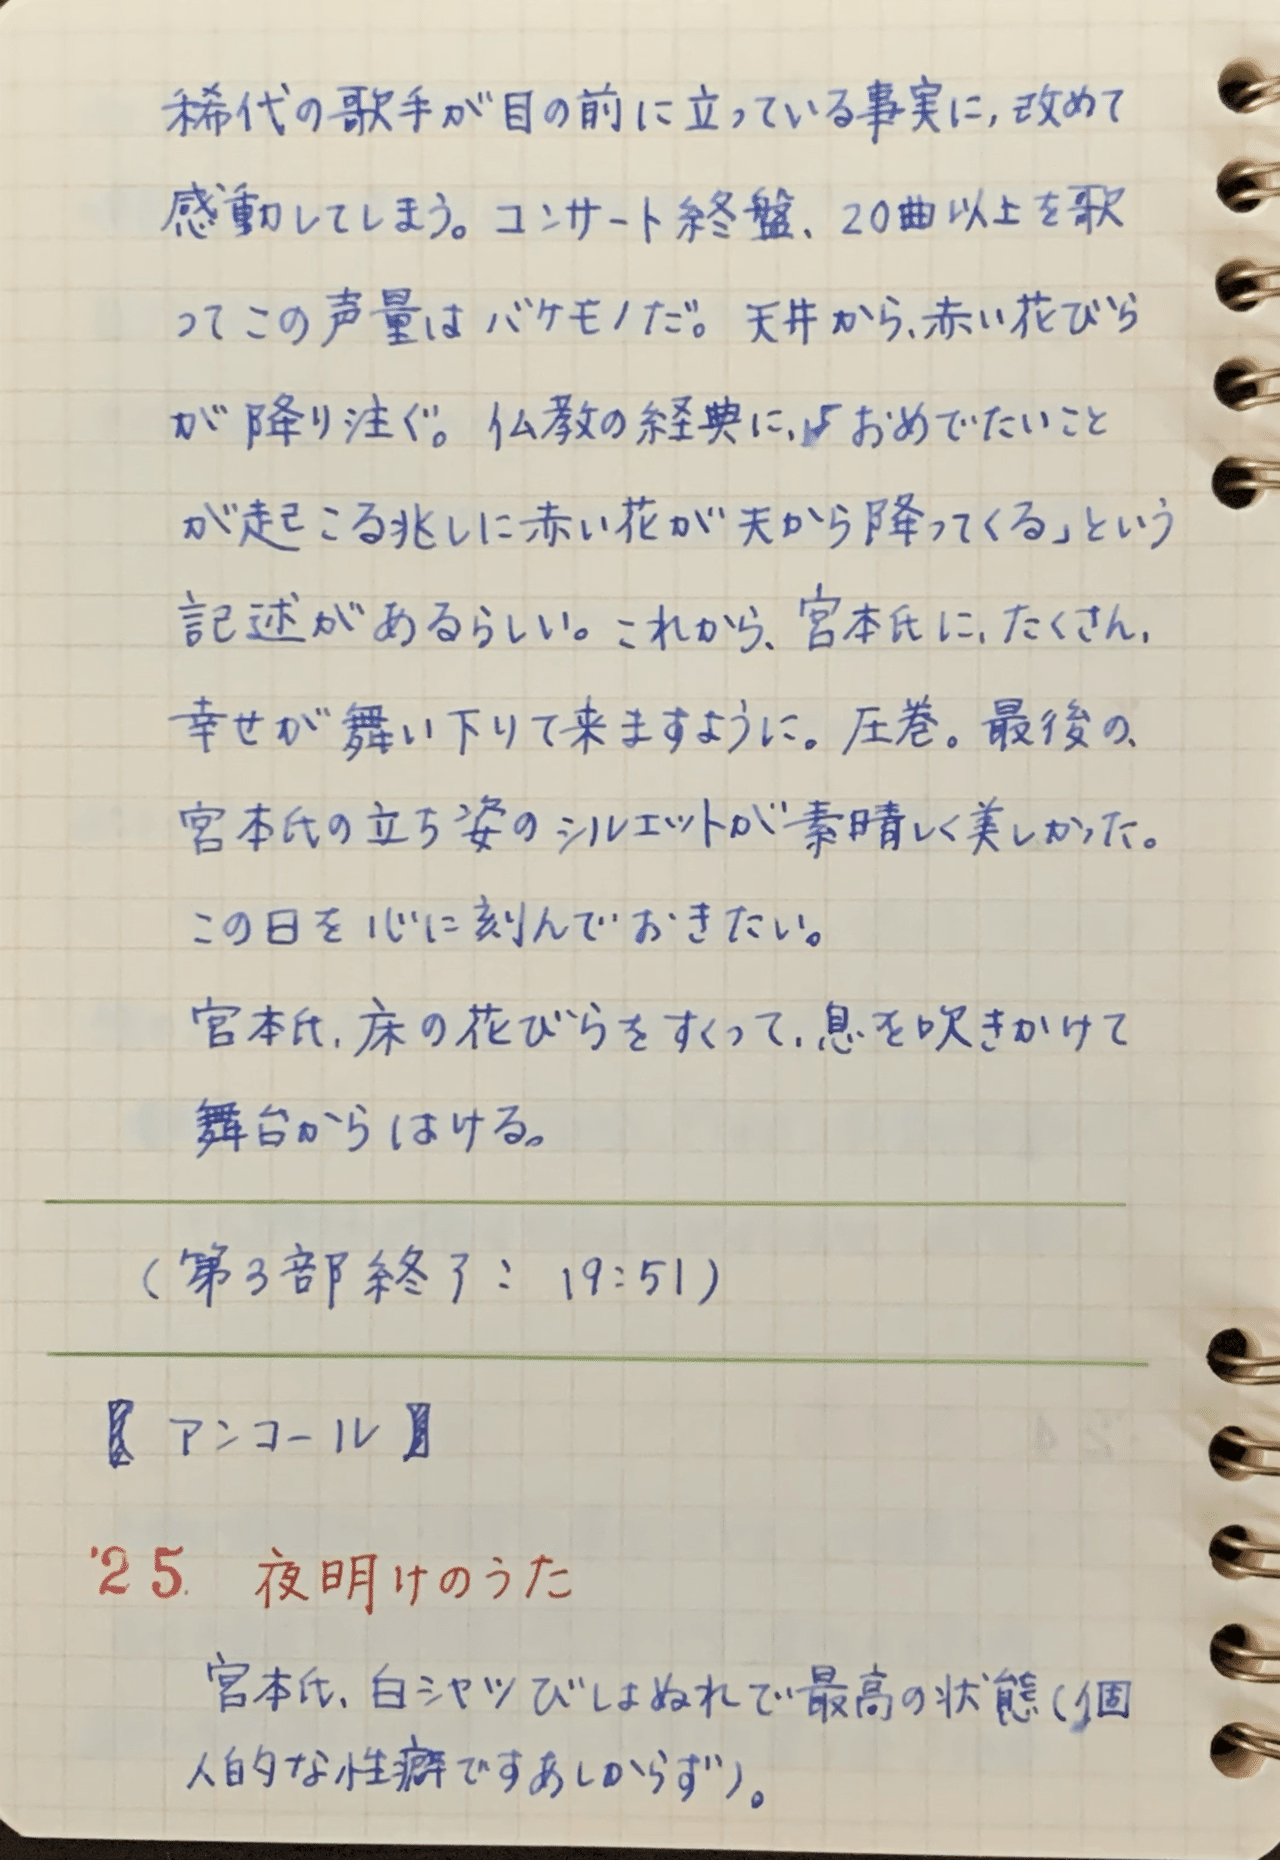 稀代の歌手が目の前に立っている事実に,改めて
感動してしまう。コンサート終盤、20曲以上を歌
ってこの声量はバケモノだ。天井から、赤い花びら
が降り注ぐ。仏教の経典に、「おめでたいこと
が起こる兆しに赤い花が天から降ってくる」という
記述があるらしい。これから、宮本氏に、たくさん、
幸せが舞い下りて来ますように。圧巻。最後の、
宮本氏の立ち姿のシルエットが素晴しく美しかった。
この日を心に刻んでおきたい。
宮本氏、床の花びらをすくって、息を吹きかけて
舞台からはける。
(第3部終了: 19:51)
【アンコール】
'25. 夜明けのうた
宮本氏、白シャツびしょぬれで最高の状態(個
人的な性癖ですあしからず)。